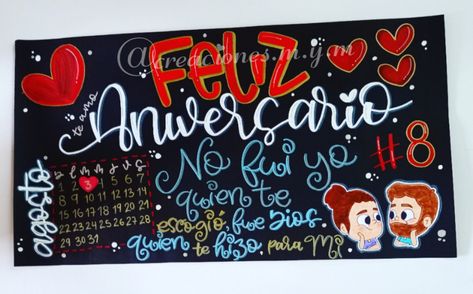 @creaciones.m.y.m
Feliz
te amo
Aniversario
#8
agosto
D L M M J V S
1 2 3 4 5 6 7
8 9 10 11 12 13 14
15 16 17 18 19 20 21
22 23 24 25 26 27 28
29 30 31
No fui yo
quien te
escogió, fue Dios
quien te hizo para Mi